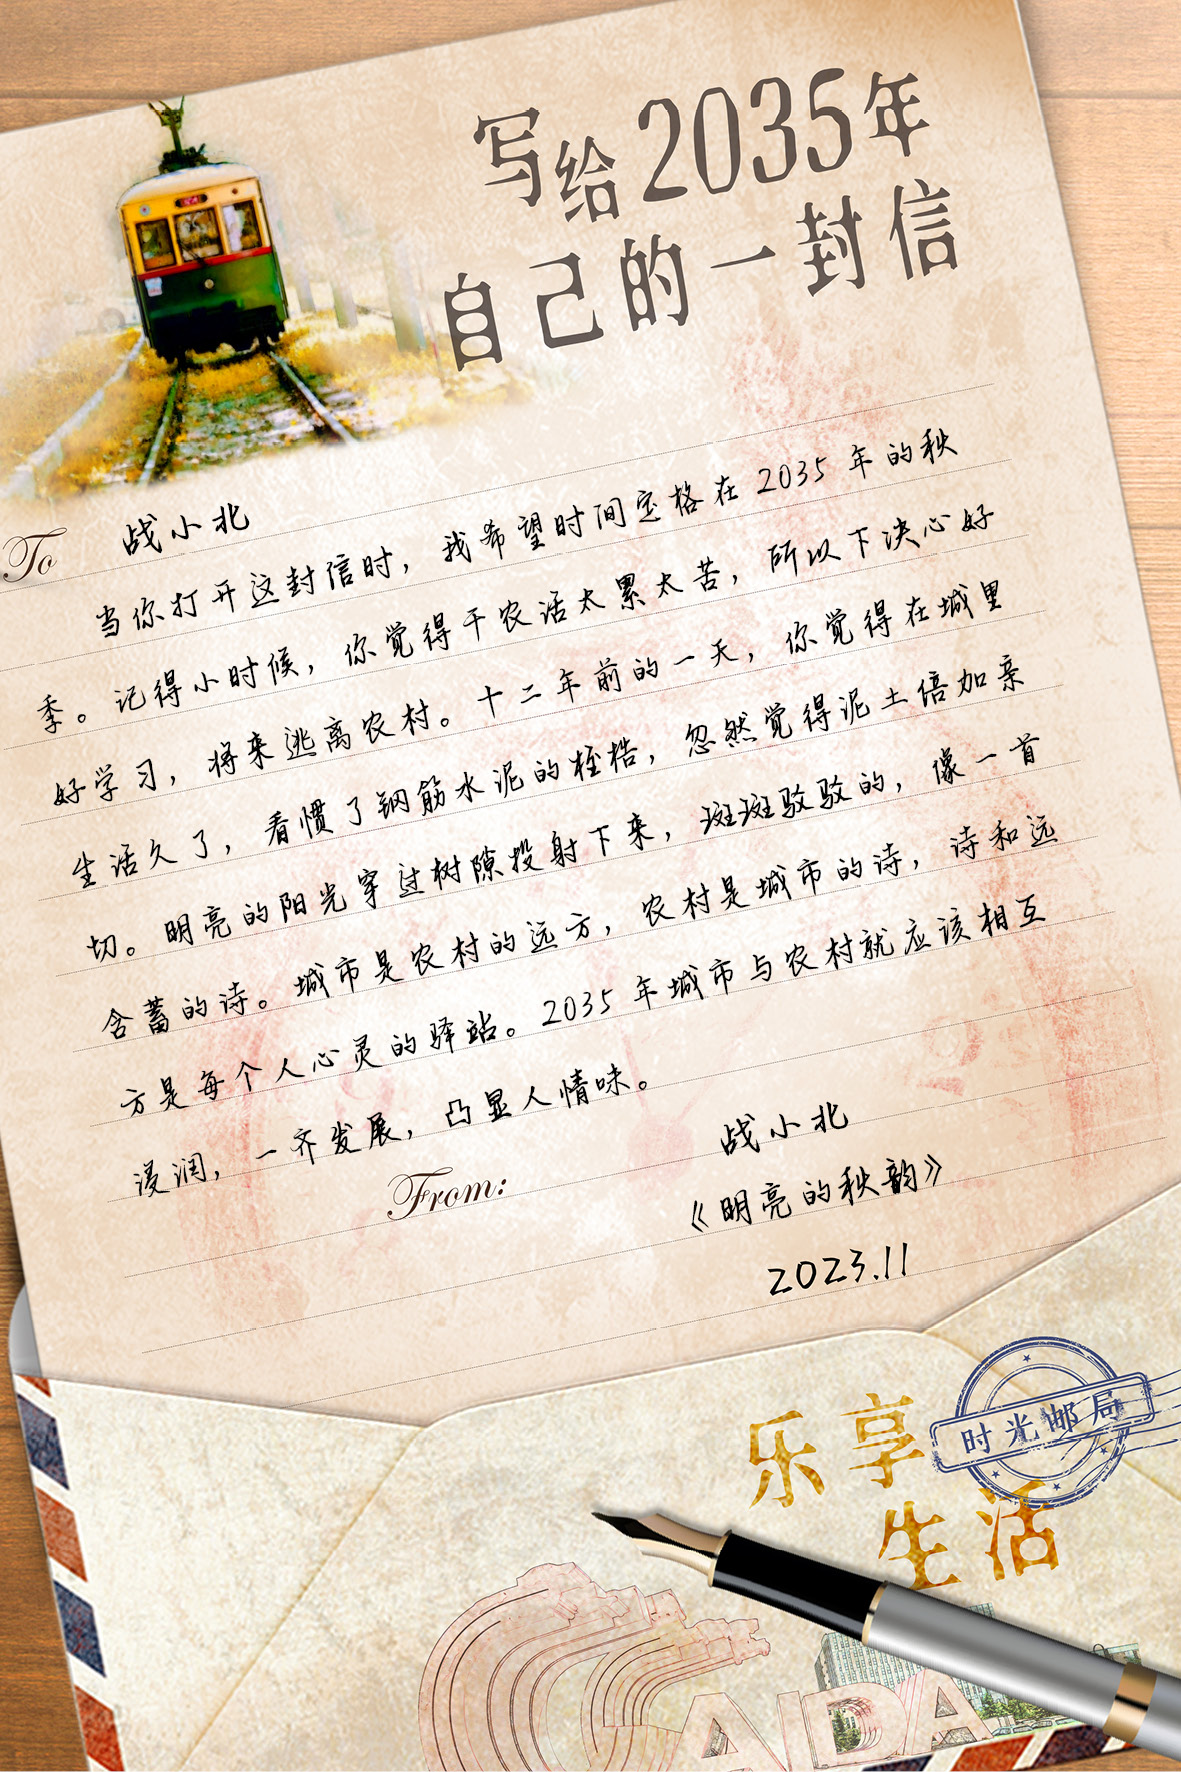 写给2035年
自己的一封信
To 战小北
当你打开这封信时，我希望时间定格在2035年的秋
季。记得小时候，你觉得干农活太累太苦，所以下决心好
好学习，将来逃离农村。十二年前的一天，你觉得在城里
生活久了，看惯了钢筋水泥的桎梏，忽然觉得泥土倍加亲
切。明亮的阳光穿过树隙投射下来，斑斑驳驳的，像一首
含蓄的诗。城市是农村的远方，农村是城市的诗，诗和远
方是每个人心灵的驿站。2035年城市与农村就应该相互
浸润，一齐发展，凸显人情味。
From: 战小北
《明亮的秋韵》
2023.11
时光邮局
乐享
生活
CAIDA